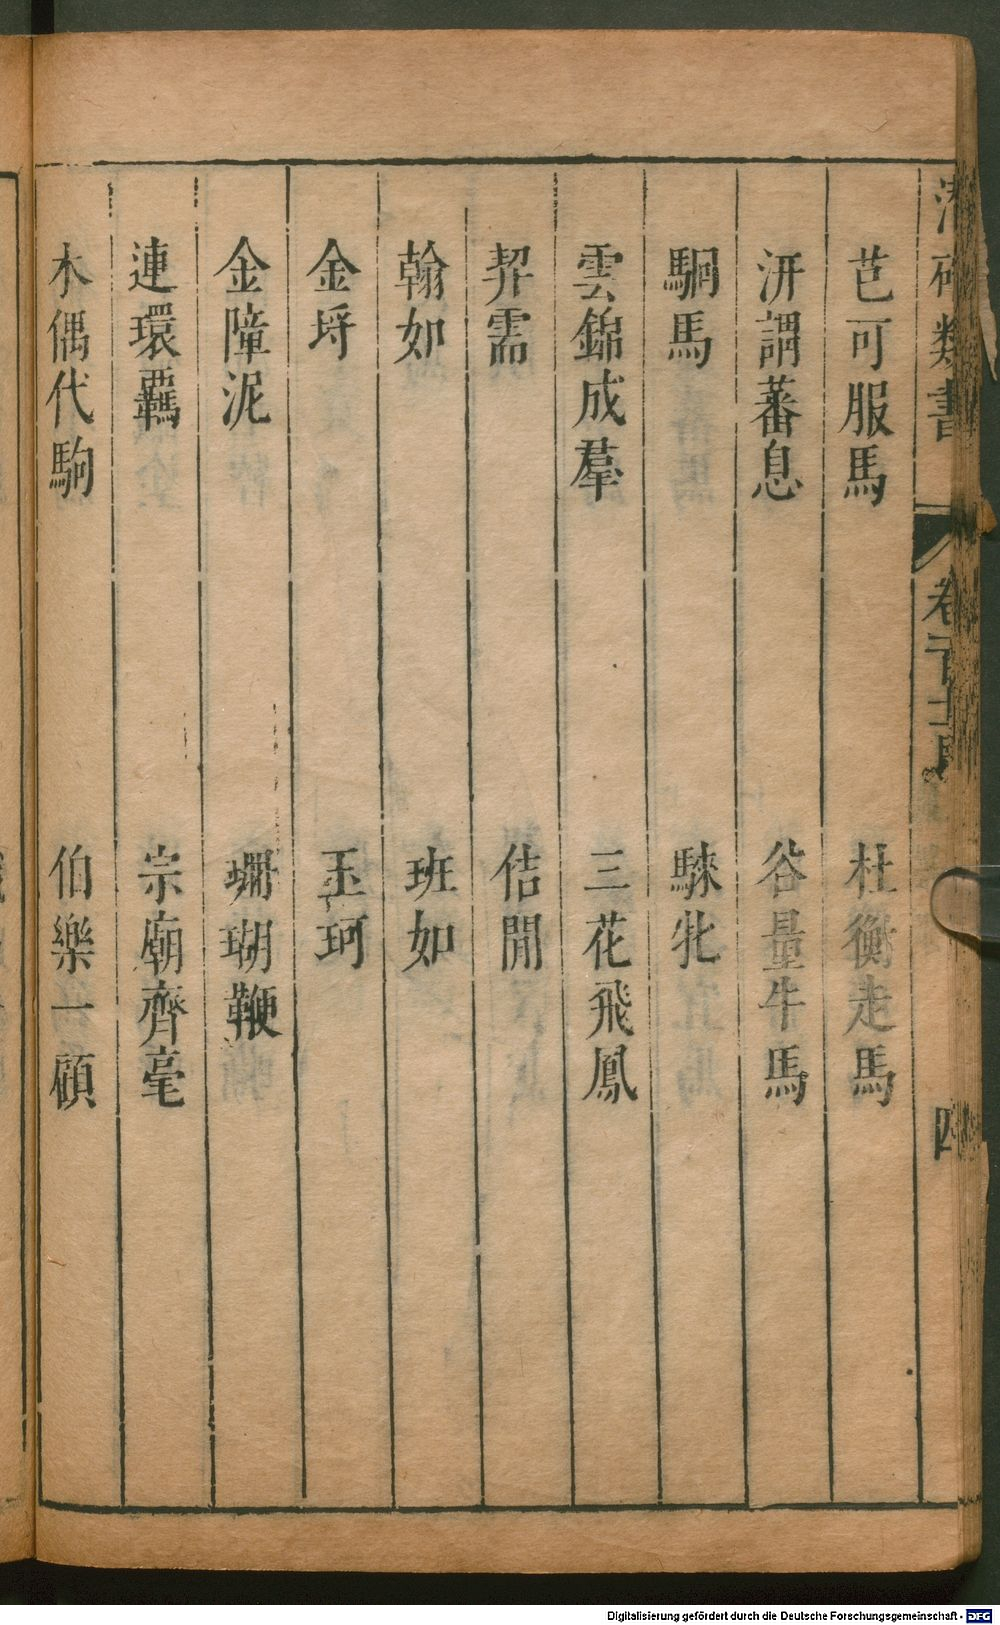 潛確類書 卷百十 四
芑可服馬 杜衡走馬
汧謂蕃息 谷量牛馬
駉馬 騋牝
雲錦成羣 三花飛鳳
契需 佶閒
翰如 班如
金埒 玉珂
金障泥 珊瑚鞭
連環羈 宗廟齊毫
木偶代駒 伯樂一顧
Digitalisierung gefördert durch die Deutsche Forschungsgemeinschaft - DFG